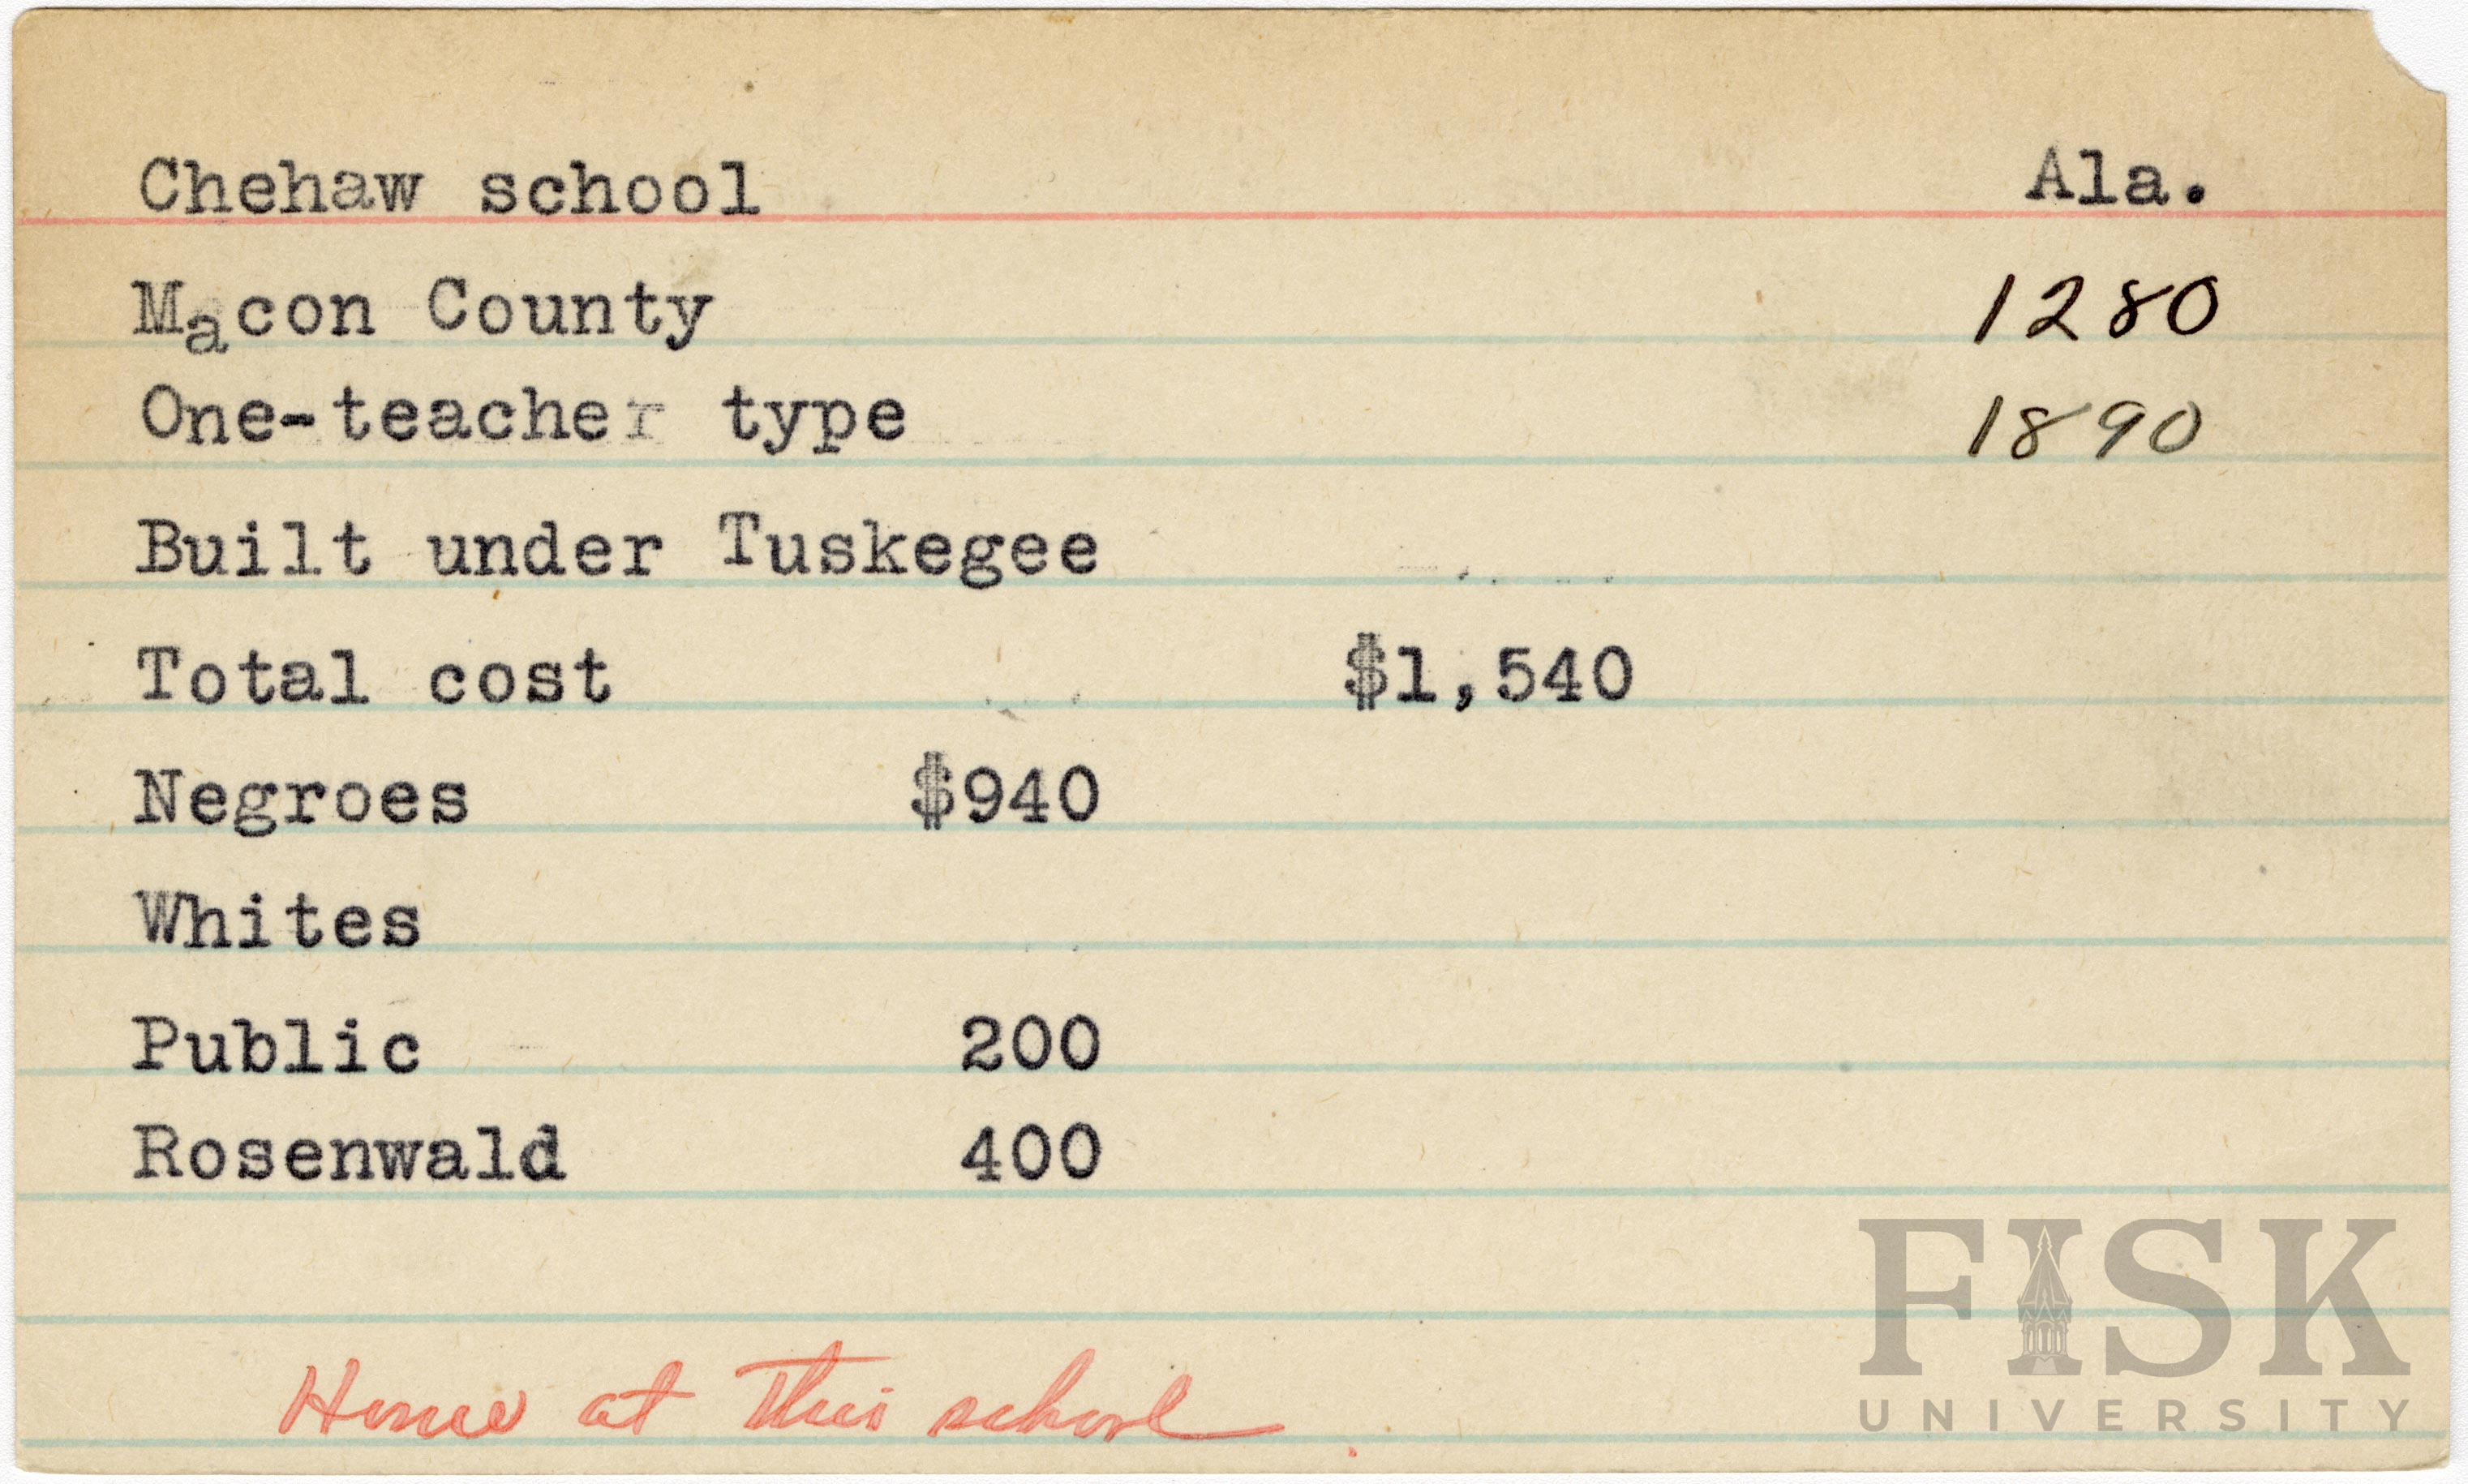 Chehaw school Ala.
Macon County 1280
One-teacher type 1890
Built under Tuskegee
Total cost $1,540
Negroes $940
Whites
Public 200
Rosenwald 400
at this school
FISK
UNIVERSITY